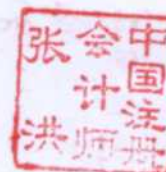 中国注册
会计师
张洪